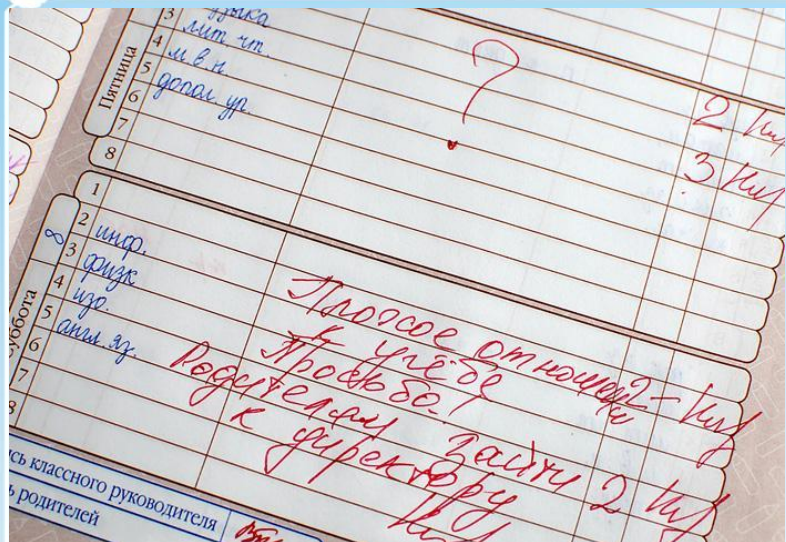 3 музыка
4 лит. чт.
5 м в н.
6 допол. ур.
7
8
Пятница
?
2
3
1
2 инф.
3 физк
4 изо.
5 англ. яз.
6
7
8
8
Суббота
Плохое отношение 2-
к учёбе
Просьба!
Родителям зайти 2
к директору
сь классного руководителя
ь родителей